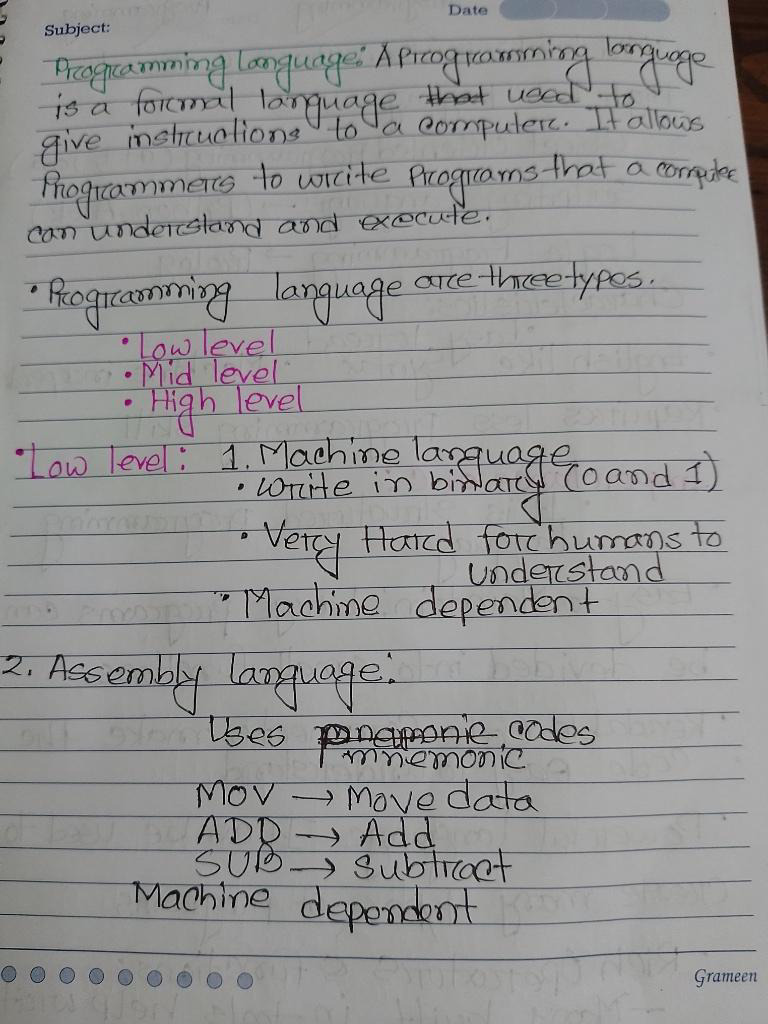 Date
Subject:
Programming language: A Programming language
is a formal language that used to
give instructions to a computer. It allows
Programmers to write Programs that a computer
can understand and execute.
• Programming language are three types.
• Low level
• Mid level
• High level
• Low level: 1. Machine language
• write in binary (0 and 1)
• Very Hard for humans to
understand
• Machine dependent
2. Assembly language:
Uses codes
mnemonic
MOV → Move data
ADD → Add
SUB → Subtract
Machine dependent
Grameen